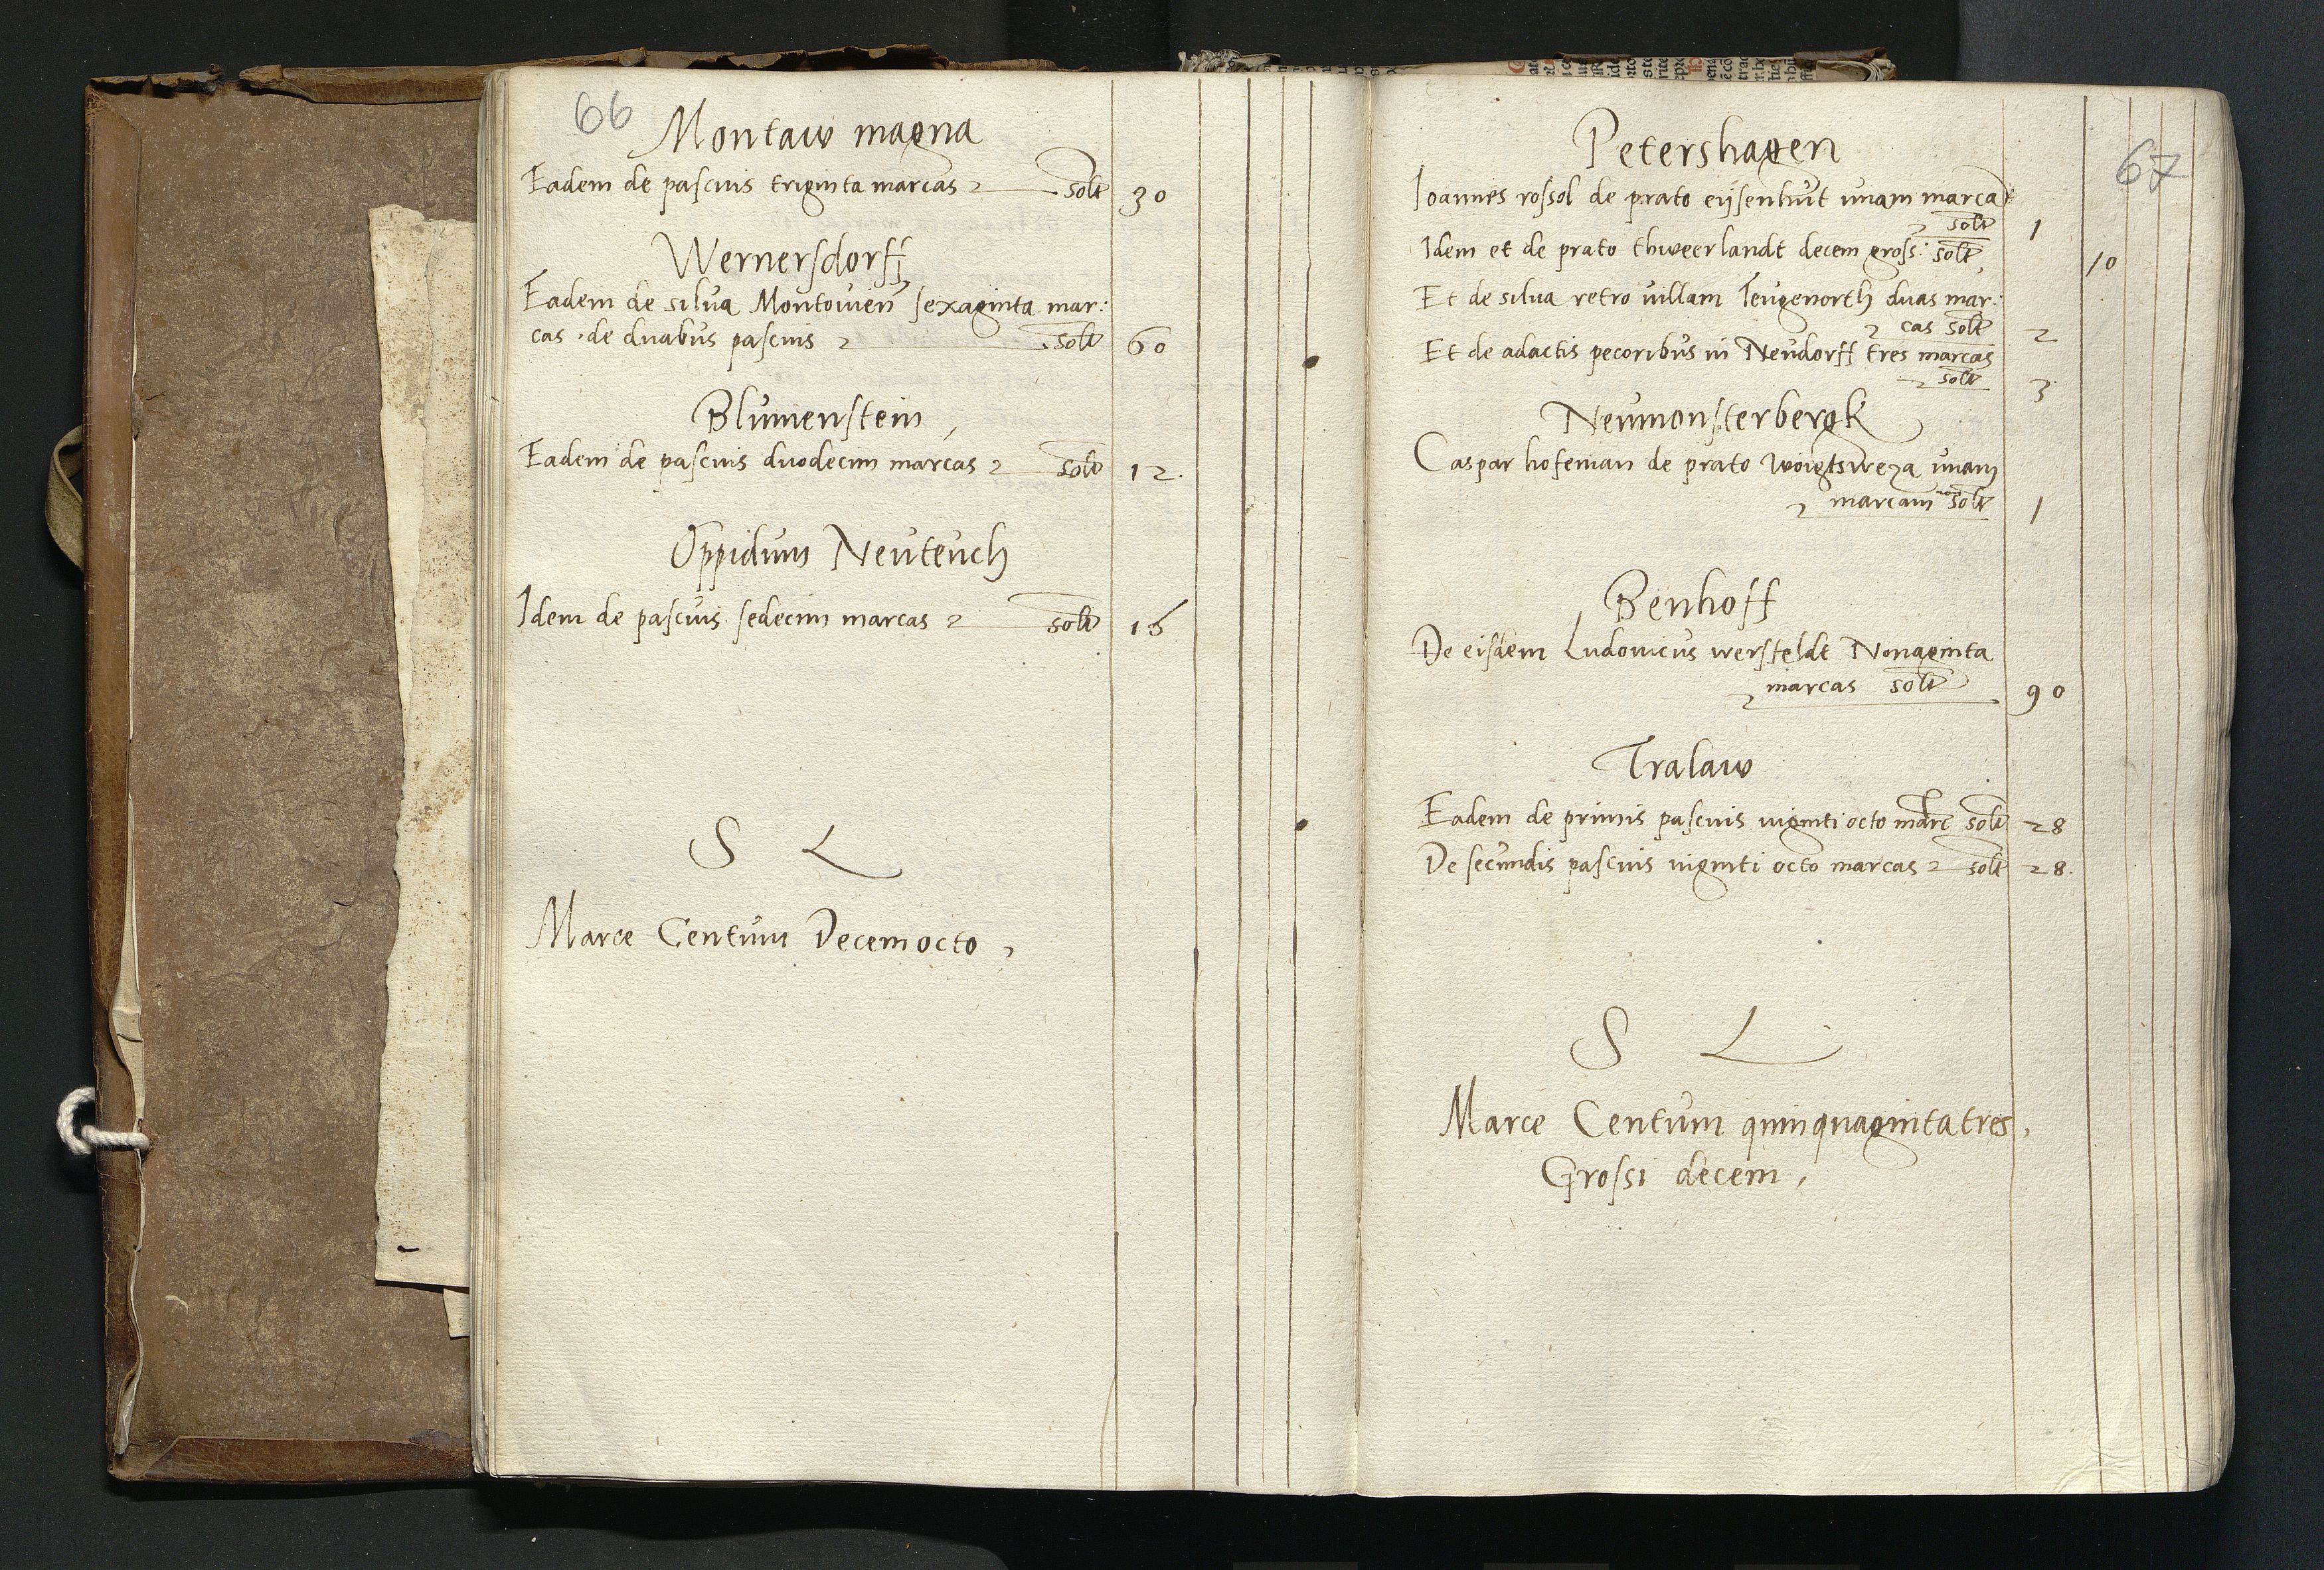 66
Montaw magna
Eadem de pascuis triginta marcas solt 30
Wernersdorff
Eadem de silva Montovien sexaginta mar:
cas de duabus pascuis solt 60
Blumenstein
Eadem de pascuis duodecim marcas solt 12.
Oppidum Neuteuch
Idem de pascuis sedecim marcas solt 16
S L
Marce Centum Decemocto,
67
Petershagen
Ioannes rossol de prato eijsenhut unam marca
solt 1
Idem et de prato thweerlandt decem gross: solt, 10
Et de silva retro villam Teugenorth duas mar:
cas solt 2
Et de adactis pecoribus in Neudorff tres marcas
solt 3
Neumonsterbergk
Caspar hofeman de prato woigtsweza unam
marcam solt 1
Benhoff
De eisdem Ludovicus wersfeldt Nonaginta
marcas solt 90
Tralaw
Eadem de primis pascuis viginti octo marc solt 28
De secundis pascuis viginti octo marcas solt 28.
S L
Marce Centum quinquaginta tres,
Grossi decem,